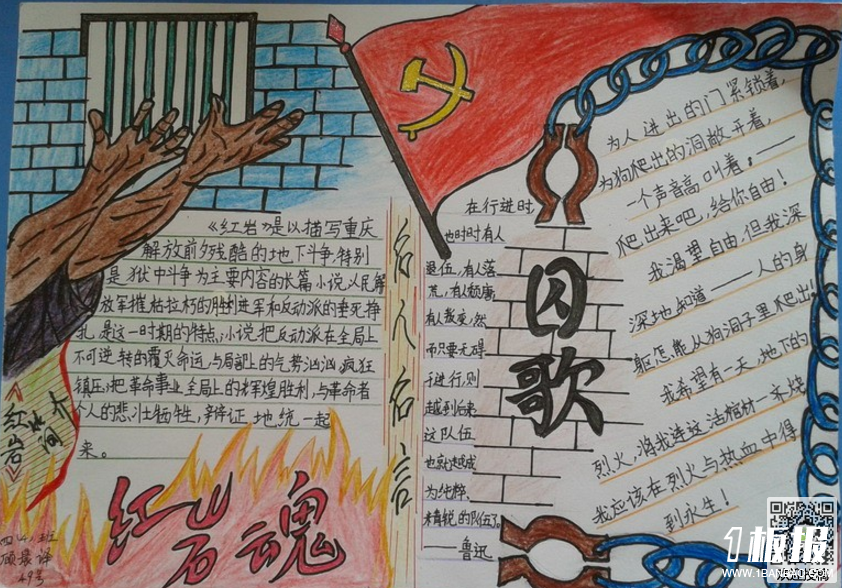 《红岩》是以描写重庆
解放前夕残酷的地下斗争,特别
是狱中斗争为主要内容的长篇小说,以民解
放军摧枯拉朽的胜利进军和反动派的垂死挣
扎是这一时期的特点,小说把反动派在全局上
不可逆转的覆灭命运与局部上的气势汹汹疯狂
镇压;把革命事业全局上的辉煌胜利,与革命者
个人的悲壮牺牲,辩证地统一起
来。
《红岩》
简介
红岩魂
四(4)班
49号
名人名言
在行进时,
也时时有人
退伍,有人落
荒,有人颓唐,
有人叛变,然
而只要无碍
于进行,则
越到后来,
这队伍
也就越成
为纯粹、
精锐的队伍了。
——鲁迅
囚歌
为人进出的门紧锁着,
为狗爬出的洞敞开着,
一个声音高叫着。——
爬出来吧,给你自由!
我渴望自由,但我深
深地知道——人的身
躯怎能从狗洞子里爬出!
我希望有一天,地下的
烈火,将我连这活棺材一齐烧
我应该在烈火与热血中得
到永生!
1板报
WWW.1BANBAO.COM
欢迎投稿